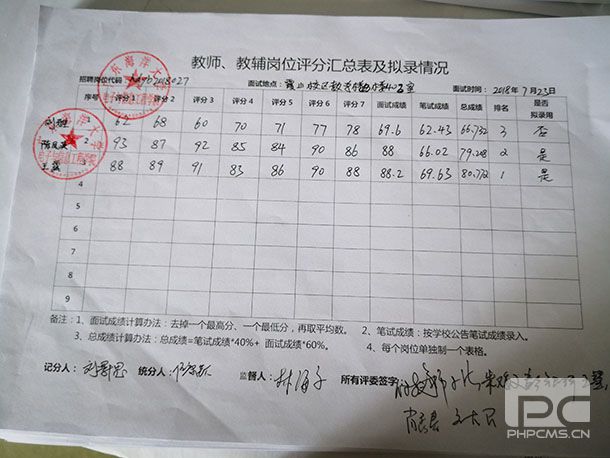 教师、教辅岗位评分汇总表及拟录情况
招聘岗位代码: 2018027 面试地点: 霞山校区教务楼 403室 面试时间: 2018年7月23日
序号 评分1 评分2 评分3 评分4 评分5 评分6 评分7 面试成绩 笔试成绩 总成绩 排名 是否拟录用
62 68 60 70 71 77 78 69.6 62.43 66.732 3 否
2 93 87 92 85 84 90 86 88 66.02 79.208 2 是
3 88 89 91 83 86 90 88 88.2 69.63 80.772 1 是
4
5
6
7
8
9
备注:1、面试成绩计算办法:去掉一个最高分、一个最低分,再取平均数。 2、笔试成绩:按学校公告笔试成绩录入。
3、总成绩计算办法:总成绩=笔试成绩*40%+ 面试成绩*60%。 4、每个岗位单独制一个表格。
记分人: 统分人: 监督人: 林海子 所有评委签字:
PC
PHPCMS.CN